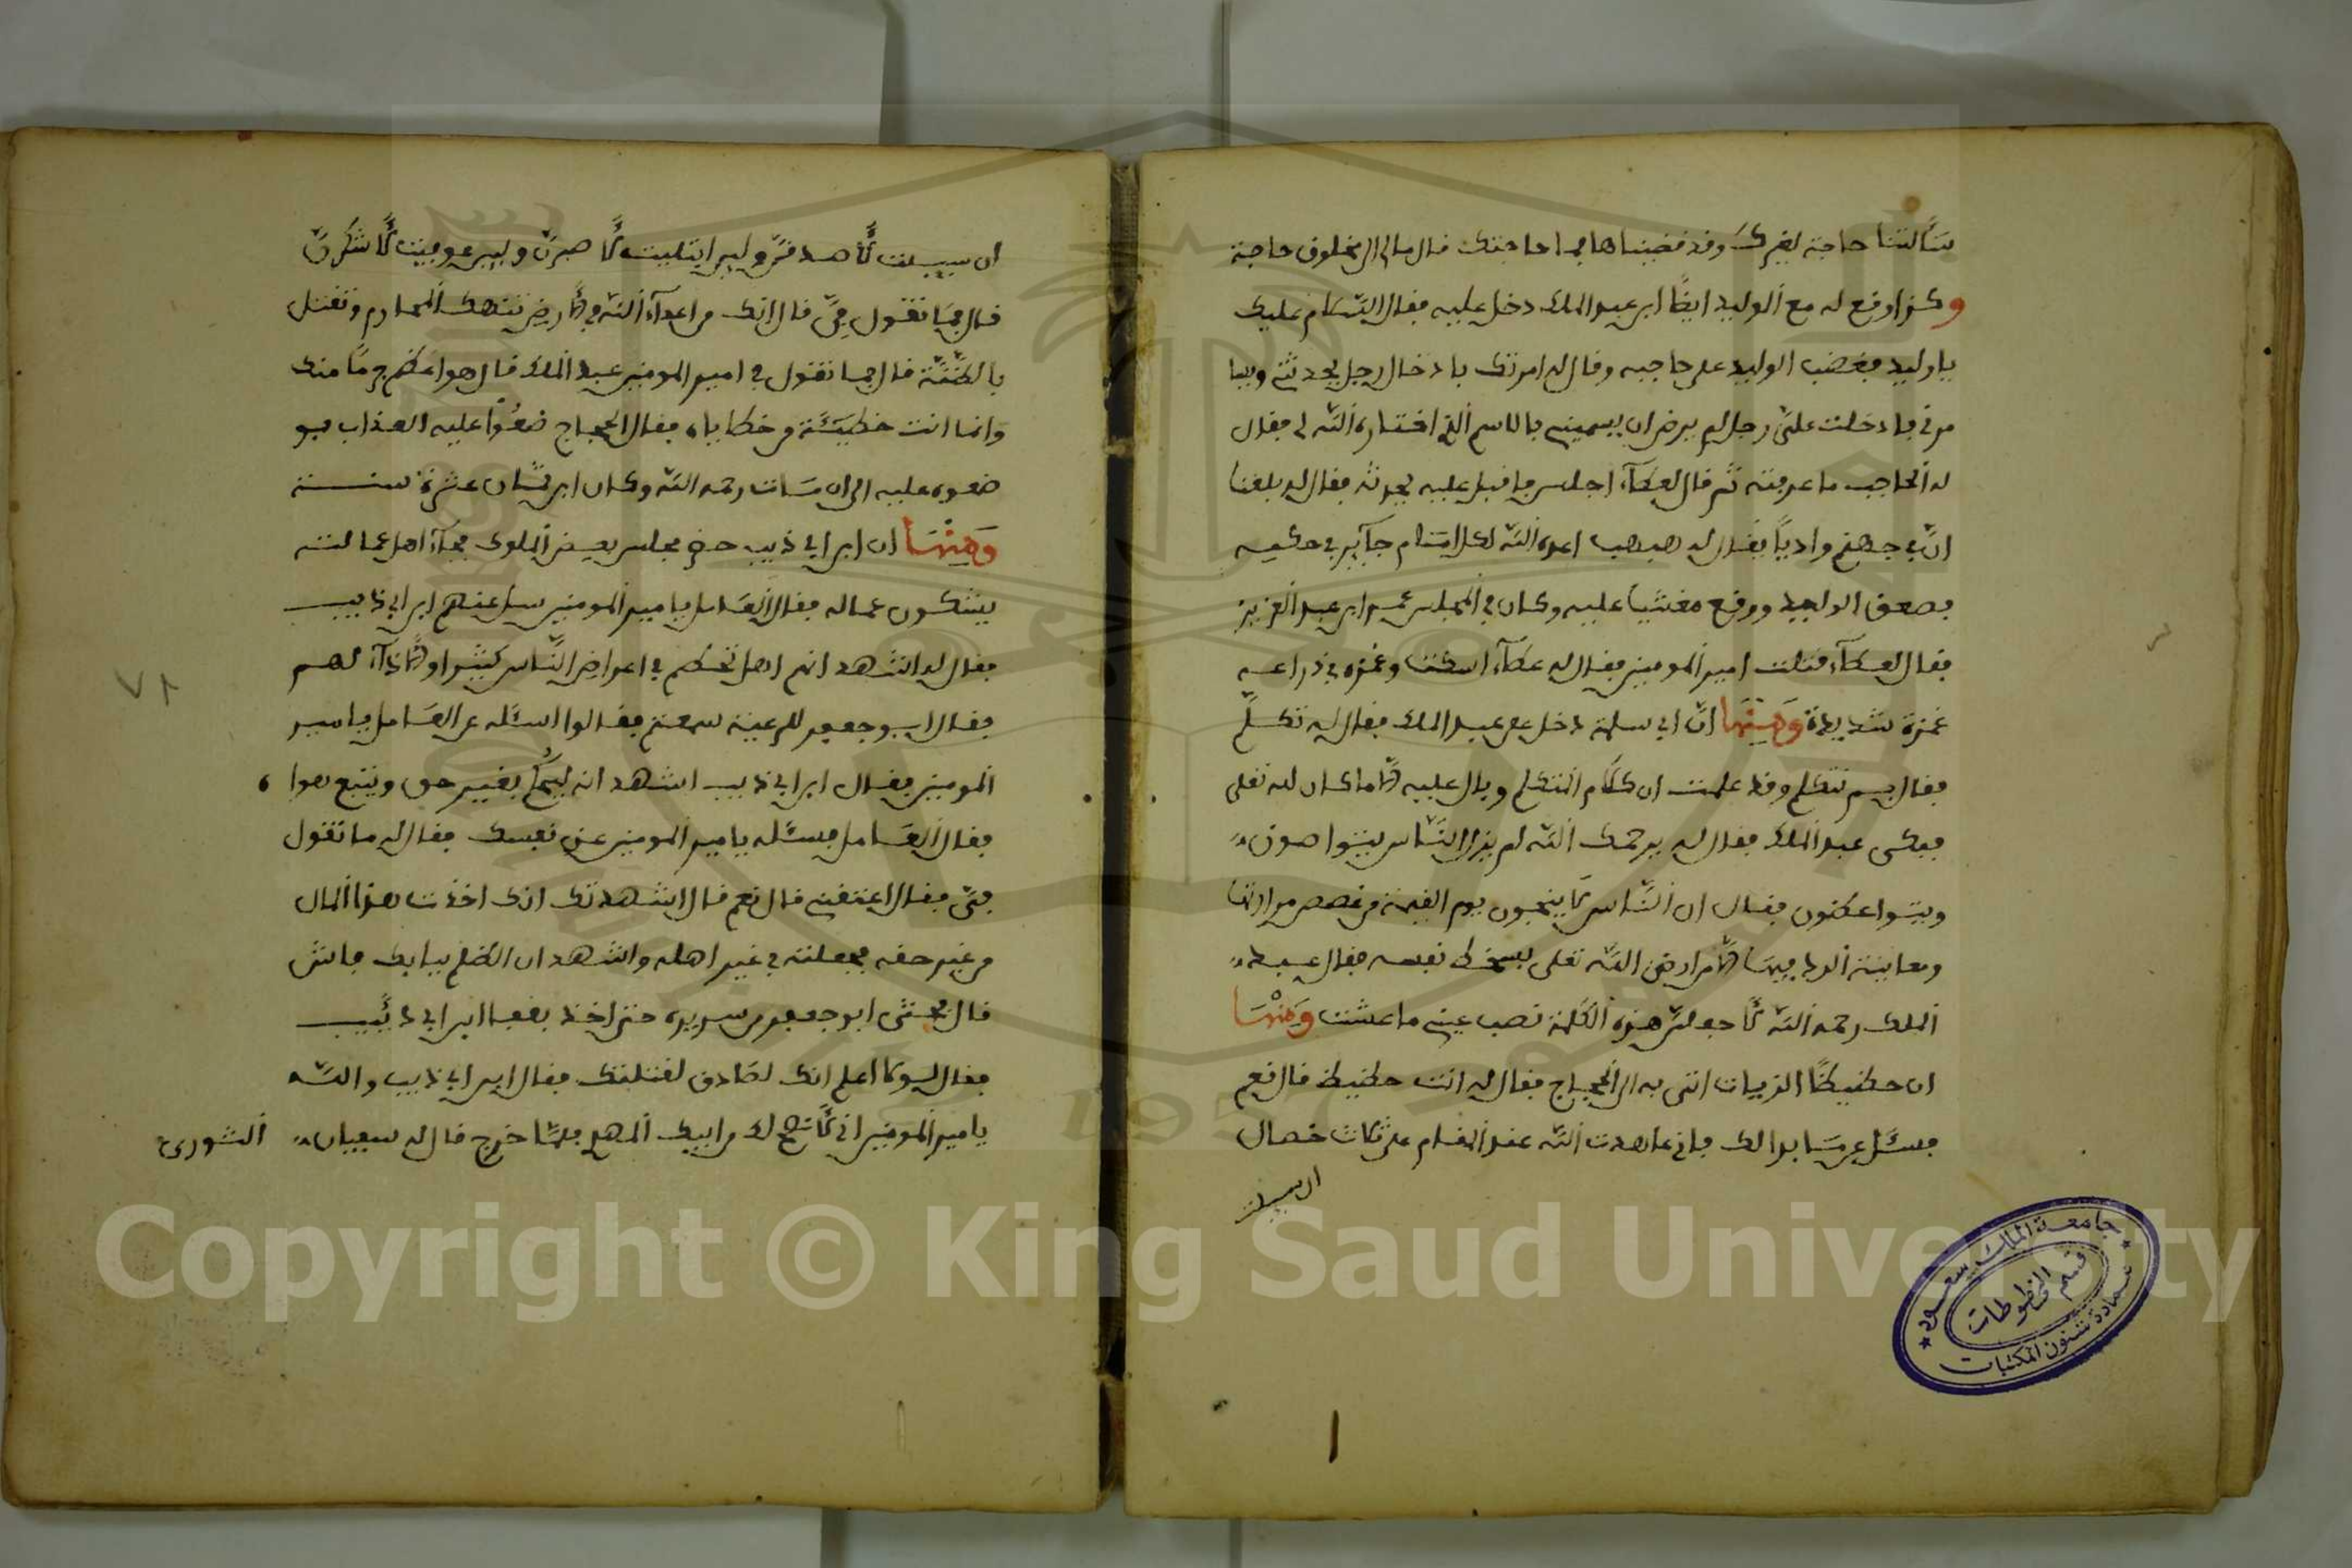 سألتنا حاجة لغيرك وقد قضيناها فما حاجتك قال مالي الى مخلوق حاجة
وكذا وقع له مع الوليد ايضًا ابن عبد الملك دخل عليه فقال السّلام عليك
يا وليد فغضب الوليد على حاجبه وقال له امرتك بادخال رجل يحدثني ويسا
مرني فادخلت عليّ رجل لم يرض ان يسميني بالاسم الذي اختاره الله لي فقال
له الحاجب ما عرفته ثم قال لعطآء اجلس فاقبل عليه يحدثه فقال له بلغنا
انّ في جهنم واديًا يقال له هبهب اعده الله لكل امام جآئر في حكمه
فصعق الوليد ووقع مغشيا عليه وكان في المجلس عمر ابن عبد العزيز
فقال لعطآء قتلت امير المومنين فقال له عطآء اسكت وغمزه في ذراعه
غمزة شديدة ومنها انّ ابي سلمة دخل على عبد الملك فقال له تكلّم
فقال بم نتكلم وقد علمت ان كلام المتكلم وبال عليه الا ما كان لله تعلى
فبكى عبد الملك فقال له يرحمك الله لم يزل النّاس يتواصون
ويتواعظون فقال ان النّاس لا ينجون يوم القيمة من غصص مرارتها
ومعاينة الردا فيها الّا من ارضى الله تعلى بسخط نفسه فقال عبد
الملك رحمه الله لأجعلنّ هذه الكلمة نصب عيني ما عشت ومنها
ان حطيطًا الزيات اتى به الى الحجاج فقال له انت حطيط قال نعم
فسئل عن ما بدا لك فاني عاهدت الله عند المقام على ثلاث خصال
ان سيلت
ان سيلت لأصدقنّ ولين ابتليت لأصبرنّ ولين عوفيت لأشكرنّ
قال فما تقول فيّ قال انك من اعدآء الله في الارض تنتهك المحارم وتقتل
بالظنّة قال فما تقول في امير المومنين عبد الملك قال هو اعظم جرمًا منك
وانما انت خطيئة من خطاياه فقال الحجاج ضعوا عليه العذاب فو
ضعوه عليه الى ان مات رحمه الله وكان ابن ثمان عشرة سنة
ومنها ان ابن ابي ذيب حضر مجلس بعض الملوك فجآء اهل عمالته
يشكون عماله فقال العامل يا مير المومنين سل عنهم ابن ابي ذيب
فقال له اشهد انهم اهل تحكم في اعراض النّاس كثيرا والاذآء لهم
فقال ابو جعفر للرعية سمعتم فقالوا اسئله عن العامل يا مير
المومنين فقال ابن ابي ذيب اشهد انه يحكم بغير حق ويتبع هواه
فقال العامل فسئله يا مير المومنين عن نفسك فقال له ما تقول
فيّ فقال اعتقني قال نعم قال اشهد انك اخذت هذا المال
من غير حقه فجعلته في غير اهله واشهد ان الظلم ببابك فاش
قال فجثى ابو جعفر من سريره حتى اخذ بقفا ابن ابي ذئيب
فقال لولا اعلم انك لصادق لقتلتك فقال ابن ابي ذيب والله
يا مير المومنين اني لأنصح لك من ابيك المهدي فلمّا خرج قال له سفيان الثوري
٧٨
جامعة الملك سعود
قسم المخطوطات
عمادة شئون المكتبات
Copyright © King Saud University
1957